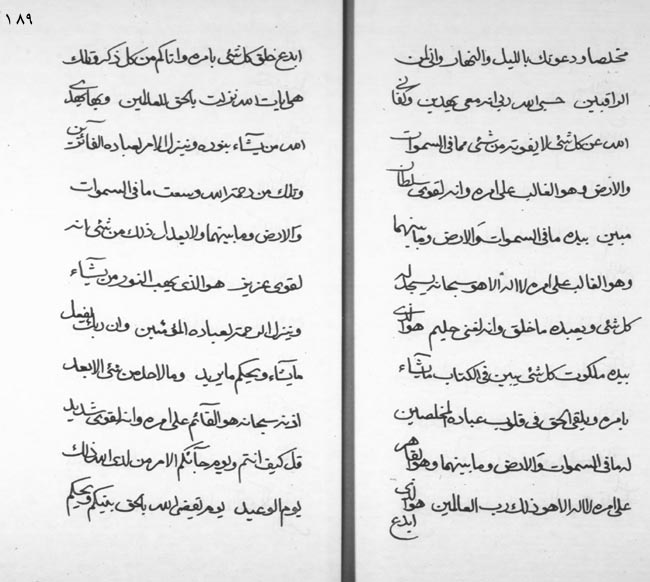 مخلصا ودعوتك بالليل والنهار وانى لمن
الراقبين حسبى الله ربى انه معى يهدين وكفانى
الله عن كلشئ لا يفوته من شئ مما فى السموات
والارض وهو الغالب على امره وانه لقوى سلطان
مبين بيده ما فى السموات والارض وما بينهما
وهو الغالب على امره لا اله الا هو سبحانه يسجد له
كلشئ ويعبده ما خلق وانه لغنى حليم هو الذى
بيده ملكوت كلشئ يبين فى الكتاب ما يشاء
بامره ويلقى الحق فى قلوب عباده المخلصين
له ما فى السموات والارض وما بينهما وهو القاهر
على امره لا اله الا هو ذلك رب العالمين هو الذى
ابدع
١٨٩
ابدع خلق كلشئ بامره واتاكم من كل ذكر وتلك
من آيات الله نزلت بالحق للعالمين وبها يهدى
الله من يشاء بنوره وينزل الامر لعباده الفائزين
وتلك من رحمة الله وسعت ما فى السموات
والارض وما بينهما ولا يعدل ذلك من شئ انه
لقوى عزيز هو الذى يهب النور من يشاء
وينزل الرحمة لعباده المؤمنين وان ربك ليفعل
ما يشاء ويحكم ما يريد وما لاحد من شئ الا بعد
اذنه سبحانه هو القائم على امره وانه لقوى شديد
قل كيف انتم ويوم جائكم الامر من لدى الله ذلك
يوم الوعيد يوم يقضى الله بالحق بينكم ويحكم